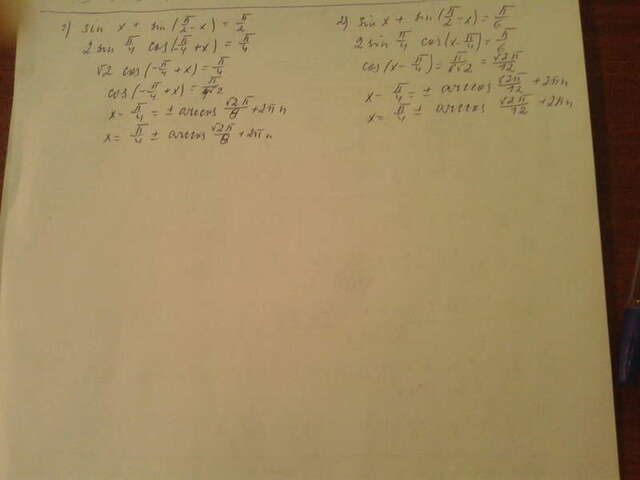 1) sin x + sin(π/2 - x) = π/2
2 sin π/4 cos(-π/4 + x) = π/4
√2 cos(-π/4 + x) = π/4
cos(-π/4 + x) = π/4√2
x - π/4 = ± arccos √2π/8 + 2πn
x = π/4 ± arccos √2π/8 + 2πn
2) sin x + sin(π/2 - x) = π/6
2 sin π/4 cos(x - π/4) = π/6
cos(x - π/4) = π/6√2 = √2π/12
x - π/4 = ± arccos √2π/12 + 2πn
x = π/4 ± arccos √2π/12 + 2πn